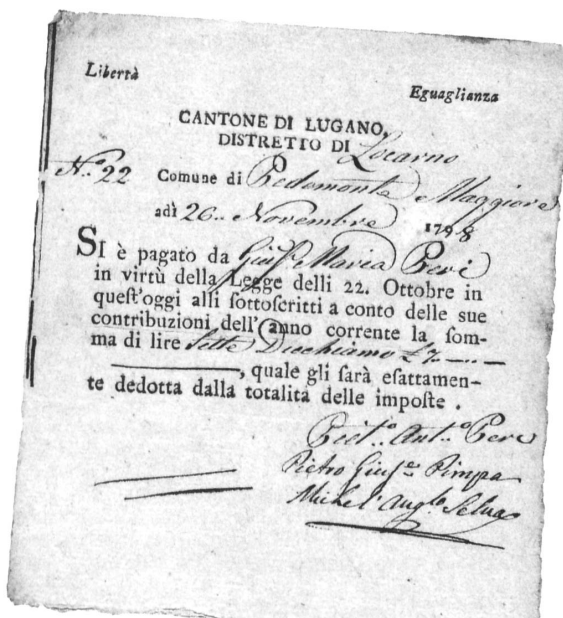 Libertà
Eguaglianza
CANTONE DI LUGANO,
DISTRETTO DI Locarno
N.º 22 Comune di Pedemonte Maggiore
adì 26.. Novembre 1798
SI è pagato da Giuſ.e Maria Peri
in virtù della Legge delli 22. Ottobre in
queſt'oggi alli ſottoſcritti a conto delle sue
contribuzioni dell'anno corrente la ſom-
ma di lire Sette Dicchiamo £ 7
, quale gli ſarà eſattamen-
te dedotta dalla totalità delle impoſte .
Ant.º
Pietro Giuſ.e Pimpa
Michel' Ang.lo Selva